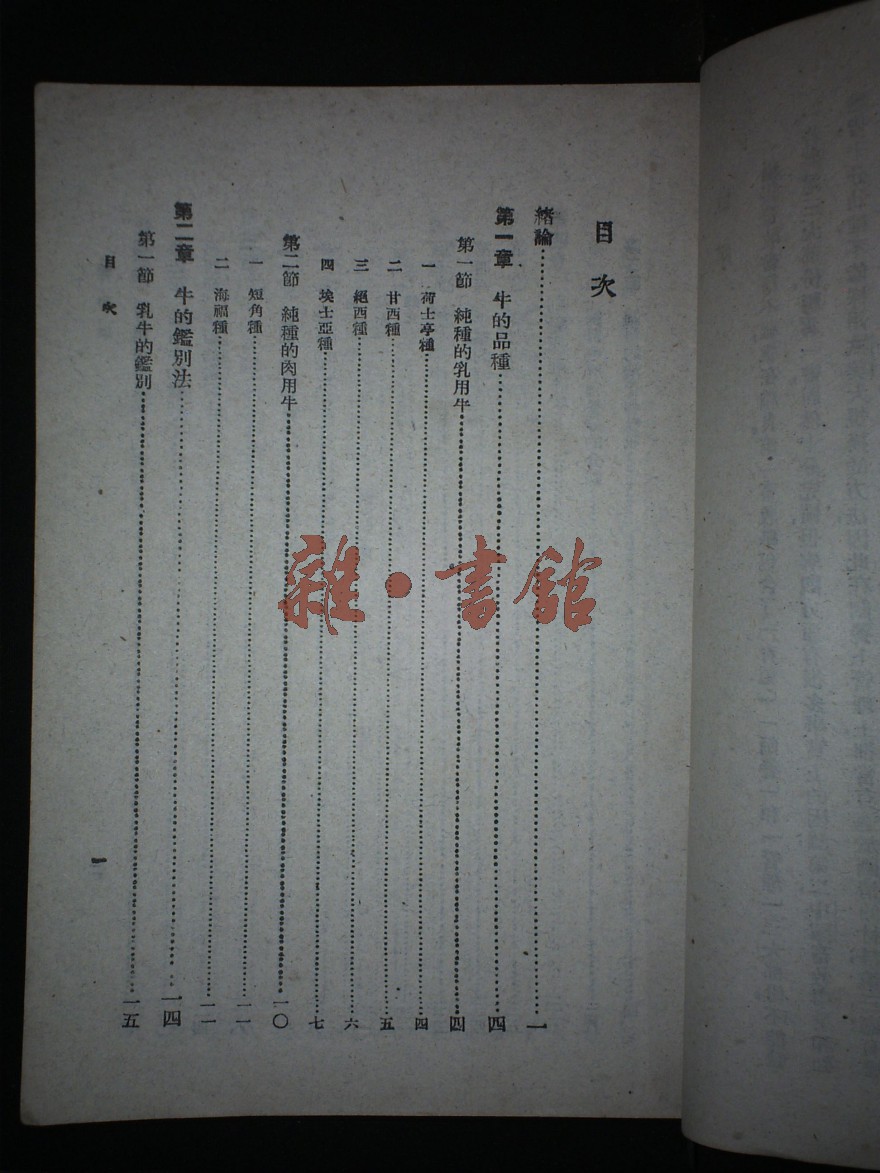 目次
緒論…………一
第一章 牛的品種…………四
第一節 純種的乳用牛…………四
一 荷士亭種…………四
二 甘西種…………五
三 絕西種…………六
四 埃士亞種…………七
第二節 純種的肉用牛…………一〇
一 短角種…………一一
二 海福種…………一一
第二章 牛的鑑別法…………一四
第一節 乳牛的鑑別…………一五
目次
一
雜·書館